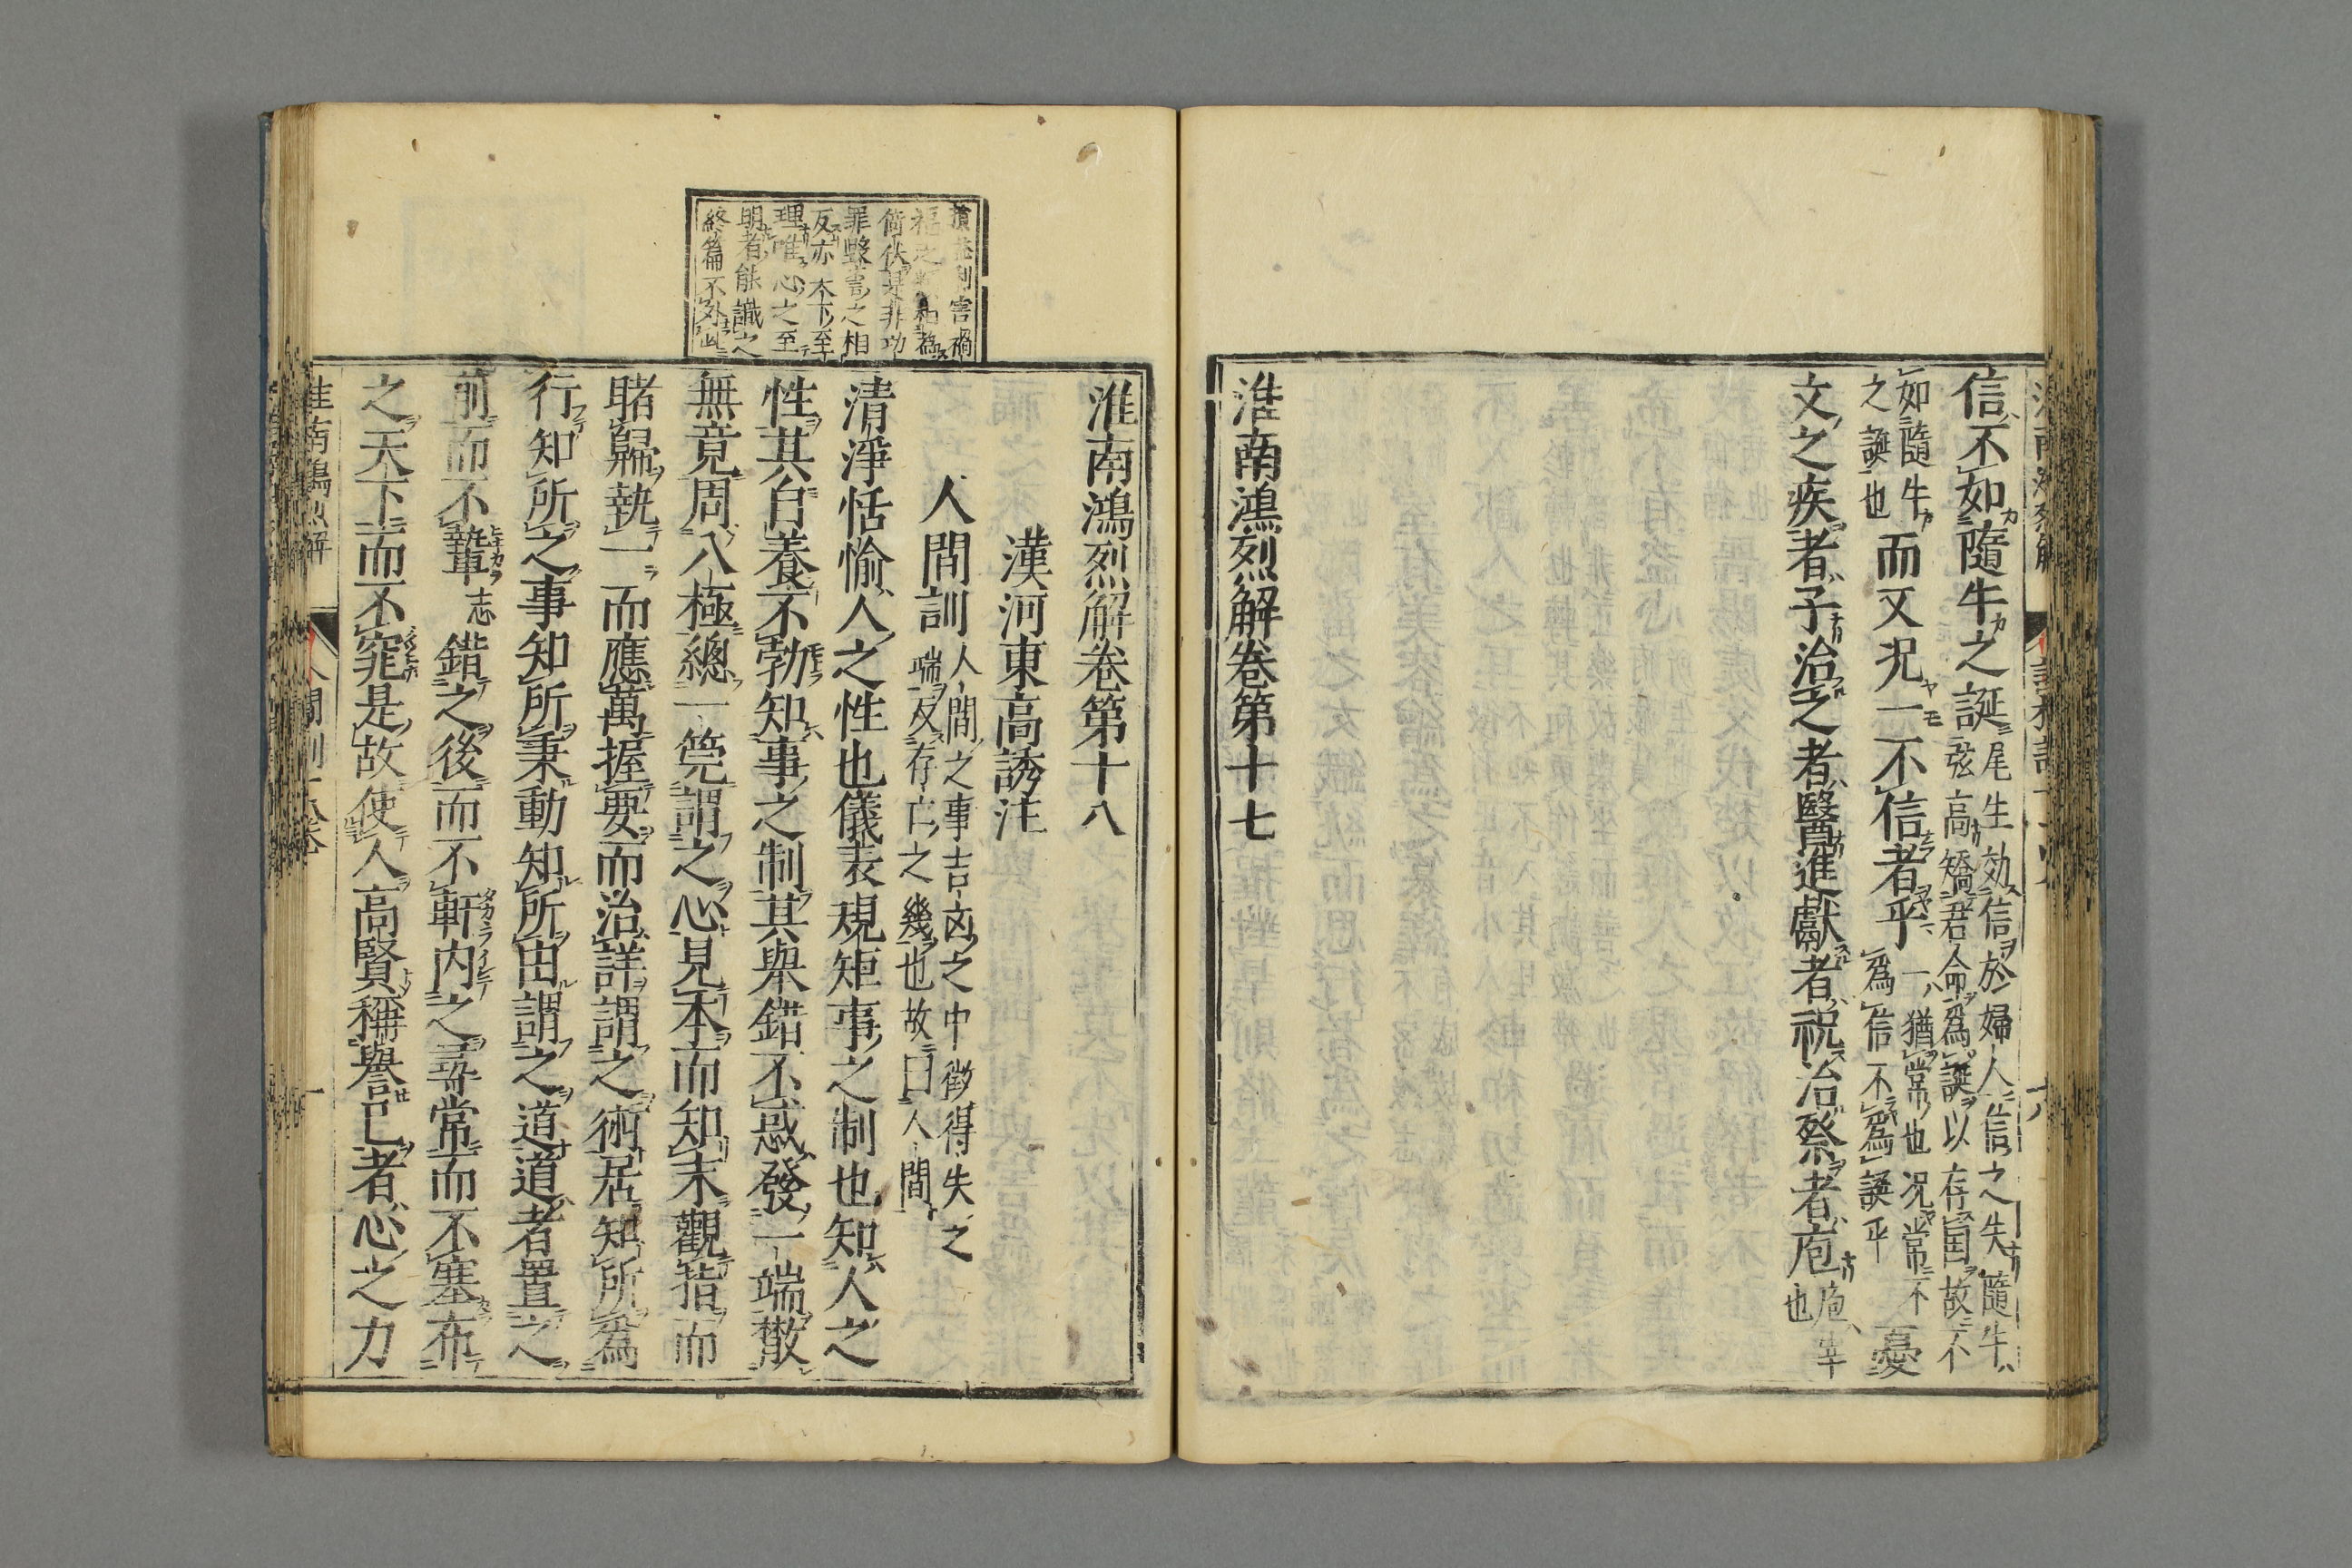 信不如隨牛之誕尾生効信於婦人信之失隨牛
弦高矯君命爲誕以存國故不
如隨牛而又況一不信者乎一猶常也況常不憂
之誕也爲信不爲誕乎
文之疾者子治之者醫進獻者祝治祭者庖庖宰
也
淮南鴻烈解卷第十七
損益利害禍
福之相為
倚伏是非功
罪毀譽之相
反亦不下至
理唯心之至
明者能識之
終篇不外此
淮南鴻烈解卷第十八
漢河東高誘注
人間訓人間之事吉凶之中徵得失之
端反存亡之幾也故曰人間
清淨恬愉人之性也儀表規矩事之制也知人之
性其自養不勃知事之制其舉錯不惑發一端散
無竟周八極總一筦謂之心見本而知末觀指而
睹歸執一而應萬握要而治詳謂之術居知所爲
行知所之事知所秉動知所由謂之道道者置之
前而不䡖志錯之後而不軒內之尋常而不塞布
之天下而不窕是故使人高賢稱譽己者心之力
淮南鴻烈解
人間訓十八卷
一